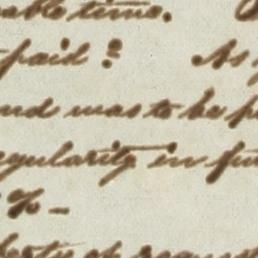 able time.
paid : As
and was to be p
egularity in fu
% -